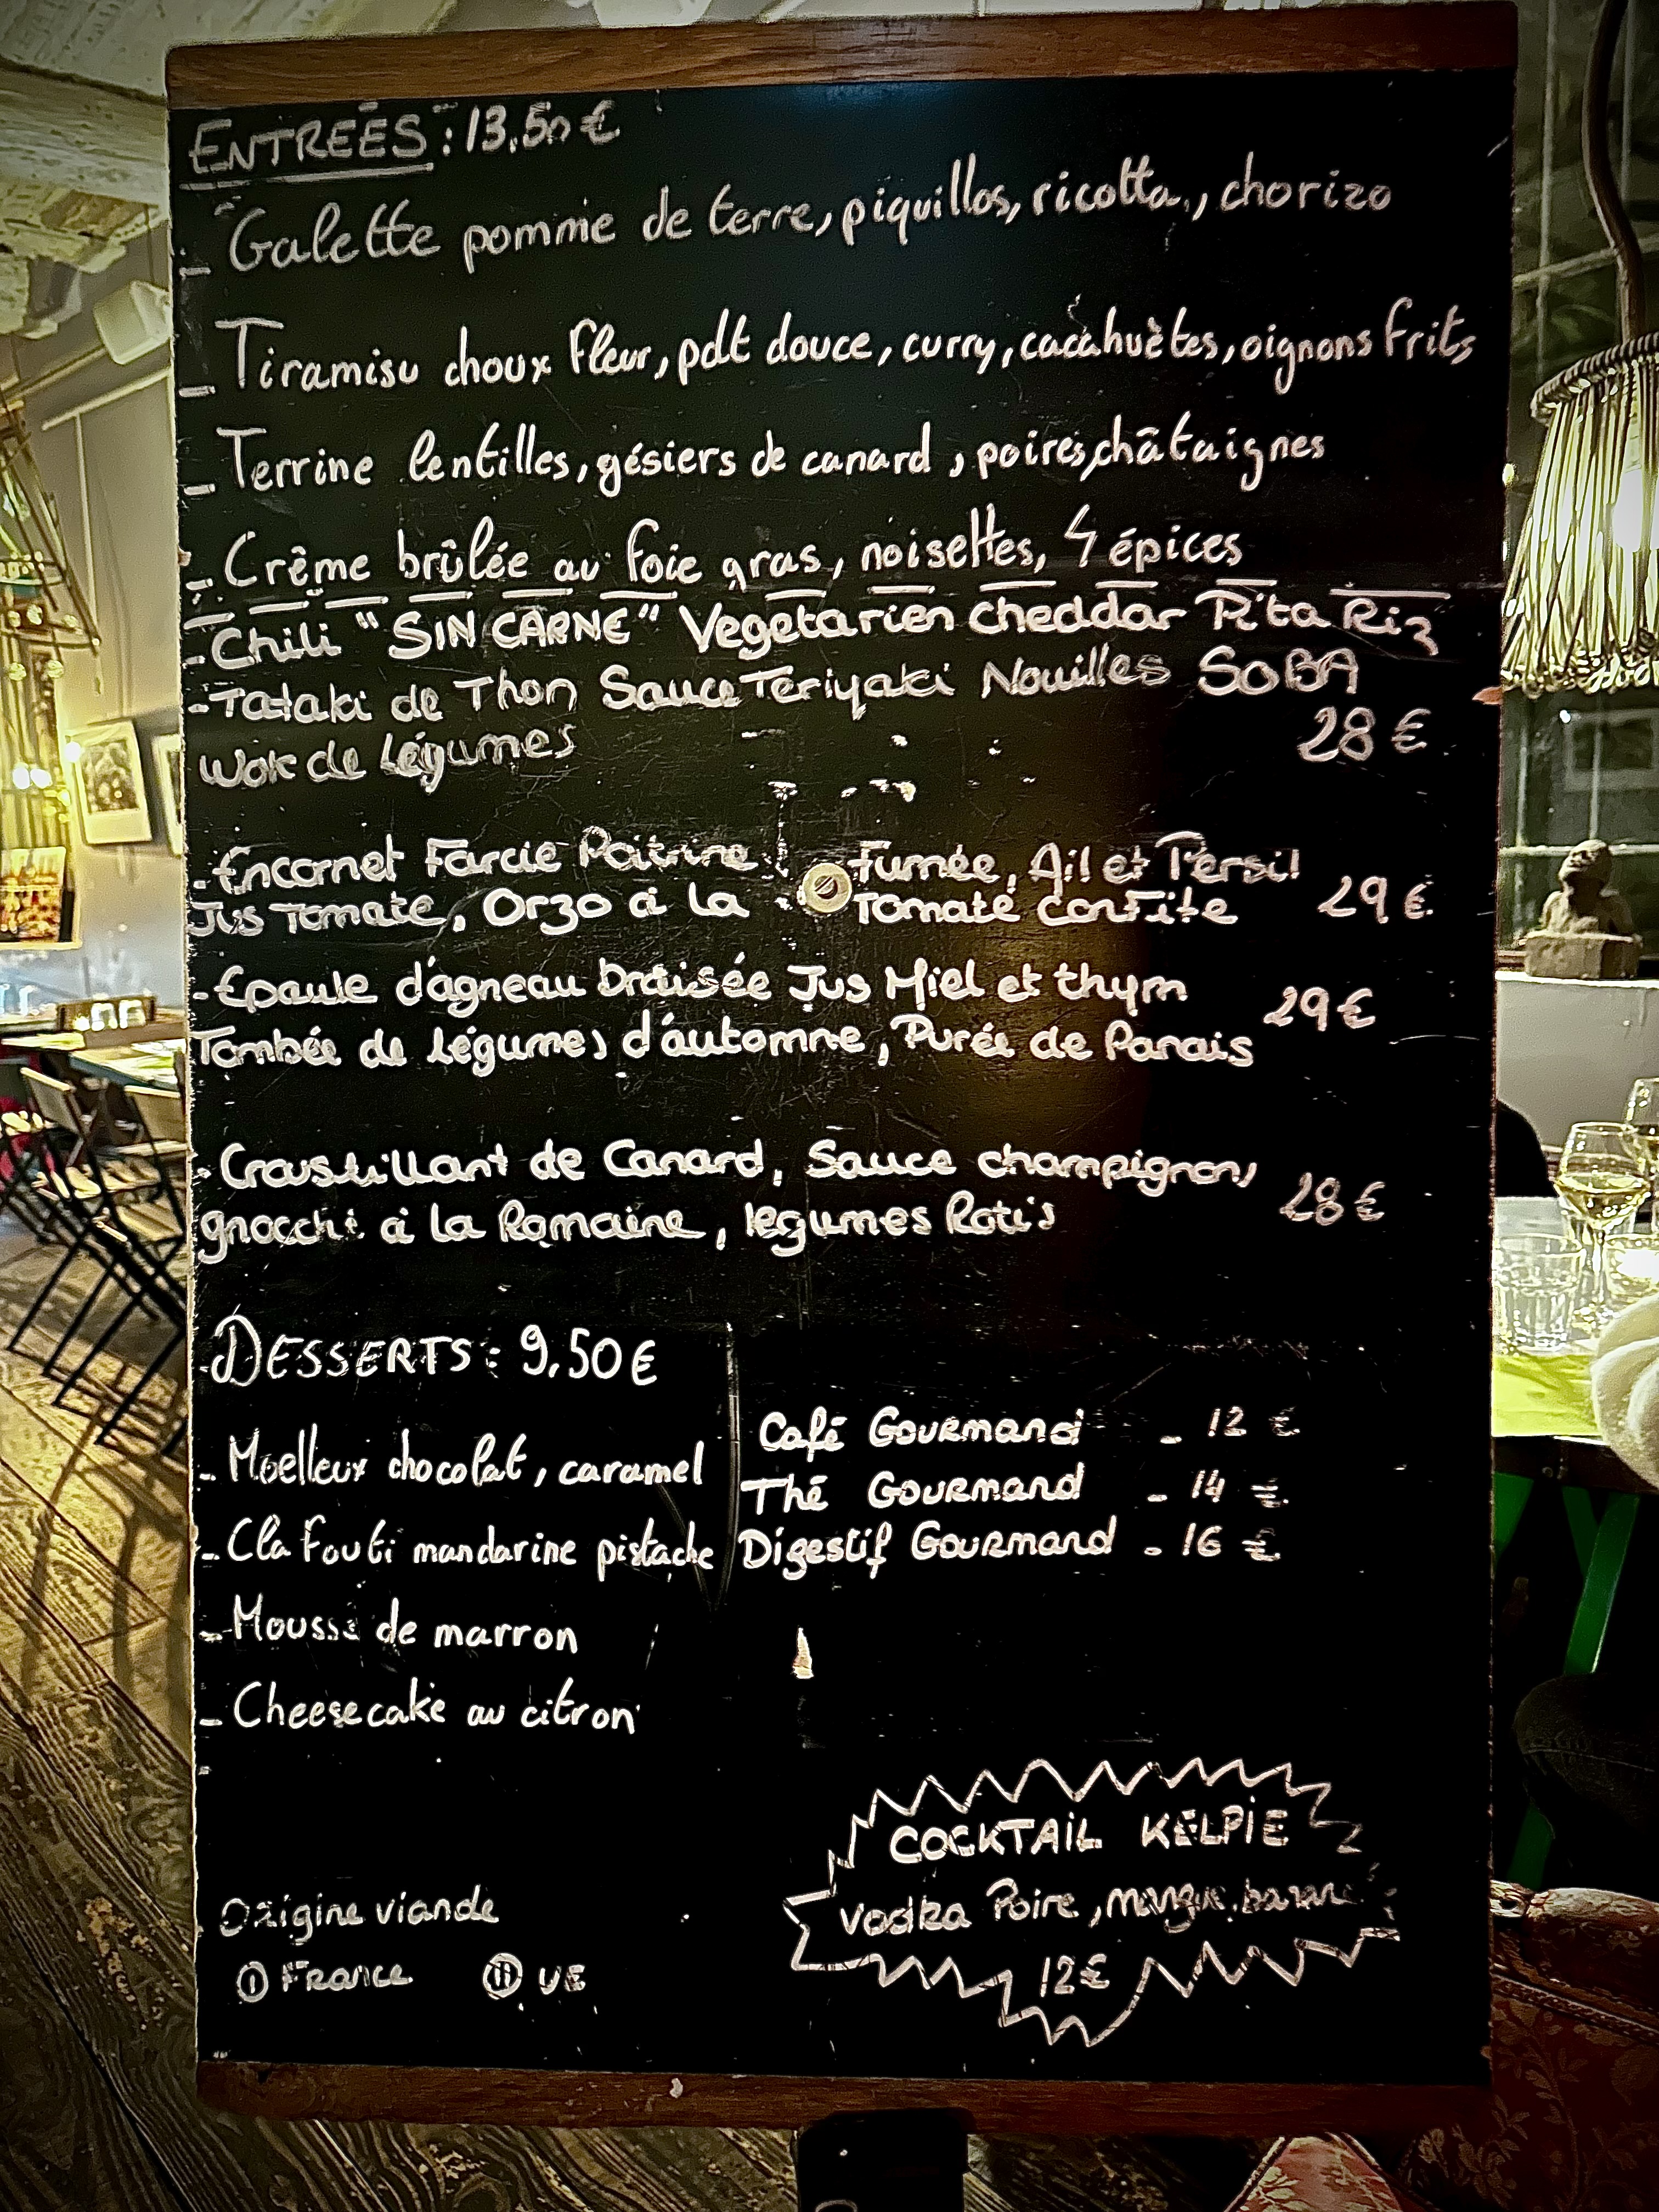 ENTRÉES : 13,50 €
- Galette pomme de terre, piquillos, ricotta, chorizo
- Tiramisu choux fleur, pdt douce, curry, cacahuètes, oignons frits
- Terrine lentilles, gésiers de canard, poires, châtaignes
- Crême brûlée au foie gras, noisettes, 4 épices
- Chili "SIN CARNE" Vegetarien cheddar Pita Riz
- Tataki de Thon Sauce Teriyaki Nouilles SOBA
Wok de Légumes 28 €
- Encornet Farcie Poitrine Fumée, Ail et Persil
Jus Tomate, Orzo à la Tomate confite 29 €
- Epaule d'agneau braisée Jus Miel et thym 29 €
Tombée de légumes d'automne, Purée de Panais
- Croustillant de Canard, Sauce champignons 28 €
gnocchi à la Romaine, legumes Rotis
DESSERTS : 9,50 €
- Moelleux chocolat, caramel
- Clafouti mandarine pistache
- Mousse de marron
- Cheesecake au citron
Café Gourmand - 12 €
Thé Gourmand - 14 €
Digestif Gourmand - 16 €
COCKTAIL KELPIE
Vodka Poire, mangue, banane
12€
Origine viande
① France ⑪ UE